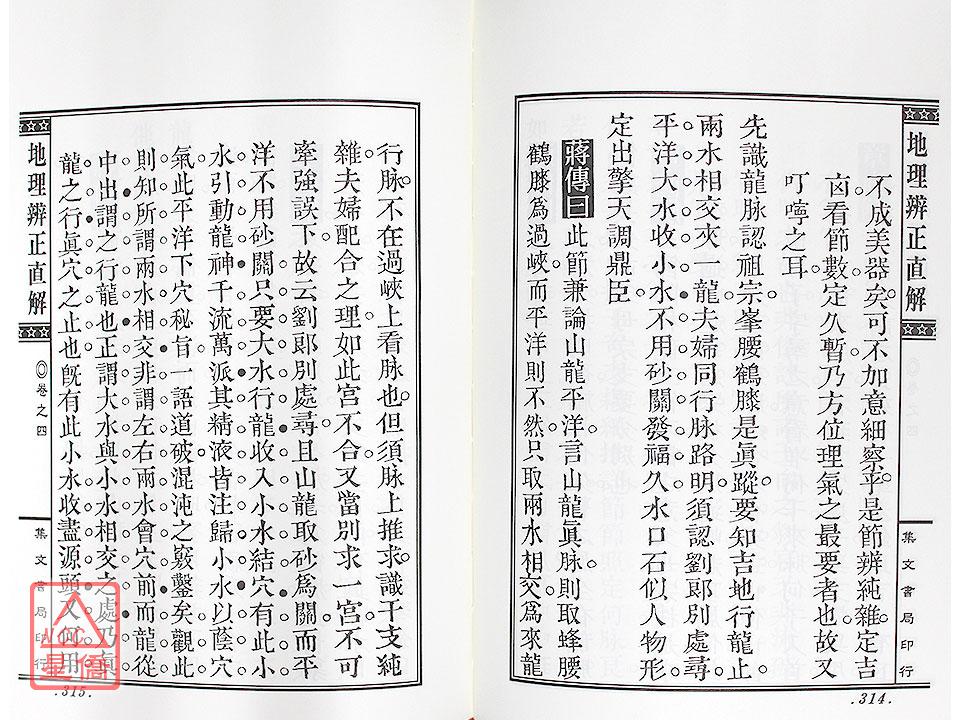 地理辨正直解
卷之四
集文書局印行
不成美器矣可不加意細察乎是節辨純雜定吉
凶看節數定久暫乃方位理氣之最要者也故又
叮嚀之耳
先識龍脉認祖宗峯腰鶴膝是眞蹤要知吉地行龍止
兩水相交夾一龍夫婦同行脉路明須認劉郞別處尋
平洋大水收小水不用砂關發福久水口石似人物形
定出擎天調鼎臣
蔣傳曰 此節兼論山龍平洋言山龍眞脉則取蜂腰
鶴膝爲過峽而平洋則不然只取兩水相交爲來龍
.314.
行脉不在過峽上看脉也但須脉上推求識干支純
雜夫婦配合之理如此宮不合又當別求一宮不可
牽強誤下故云劉郞別處尋且山龍取砂爲關而平
洋不用砂關只要大水行龍收入小水結穴有此小
水引動龍神千流萬派其精液皆注歸小水以蔭穴
氣此平洋下穴秘旨一語道破混沌之竅鑿矣觀此
則知所謂兩水相交非謂左右兩水會穴前而龍從
中出謂之行龍也正謂大水與小水相交之處乃眞
龍之行眞穴之止也旣有此小水收盡源頭又何用
地理辨正直解
卷之四
集文書局印行
.315.